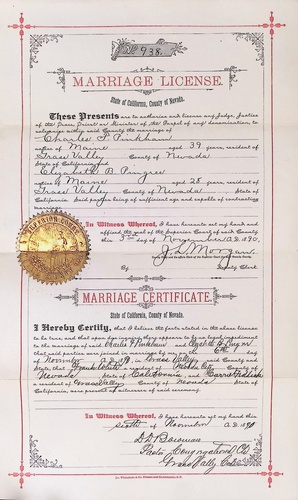 No. 938.
MARRIAGE LICENSE.
State of California, County of Nevada.
These Presents are to authorize and license any Judge, Justice
of the Peace, Priest or Minister of the Gospel of any denomination, to
solemnize within said County the marriage of
Charles F. Pinkham
native of Maine aged 39 years, resident of
Grass Valley County of Nevada
State of California, and
Elizabeth B. Pingree
native of Maine aged 28 years, resident of
Grass Valley County of Nevada State of
California. Said parties being of sufficient age and capable of contracting
marriage.
In Witness Whereof, I have hereunto set my hand and
affixed the seal of the Superior Court of said County
this 3rd day of November A.D. 1890.
J. L. Morgan
By Deputy Clerk.
MARRIAGE CERTIFICATE.
State of California, County of Nevada.
I Hereby Certify, that I believe the facts stated in the above license
to be true, and that upon due inquiry there appears to be no legal impediment
to the marriage of said Charles F. Pinkham and Elizabeth B. Pingree
that said parties were joined in marriage by me on the 6th day of
November A.D. 1890 in Grass Valley said County and
State; that a resident of Nevada City County of
Nevada State of California and
a resident of Grass Valley County of Nevada State of
California, were present as witnesses of said ceremony.
In Witness Whereof, I have hereunto set my hand this
sixth of November A.D. 1890
D. D. Bowman
Pastor Congregational Ch
Grass Valley